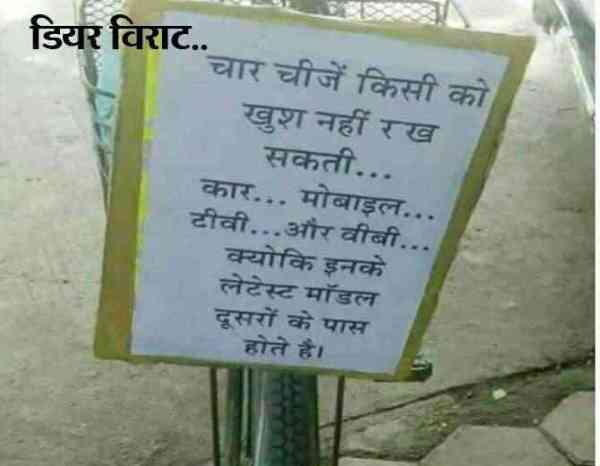 डियर विराट..
चार चीजें किसी को
खुश नहीं रख
सकती...
कार... मोबाइल...
टीवी...और वीबी...
क्योकि इनके
लेटेस्ट मॉडल
दूसरों के पास
होते है।